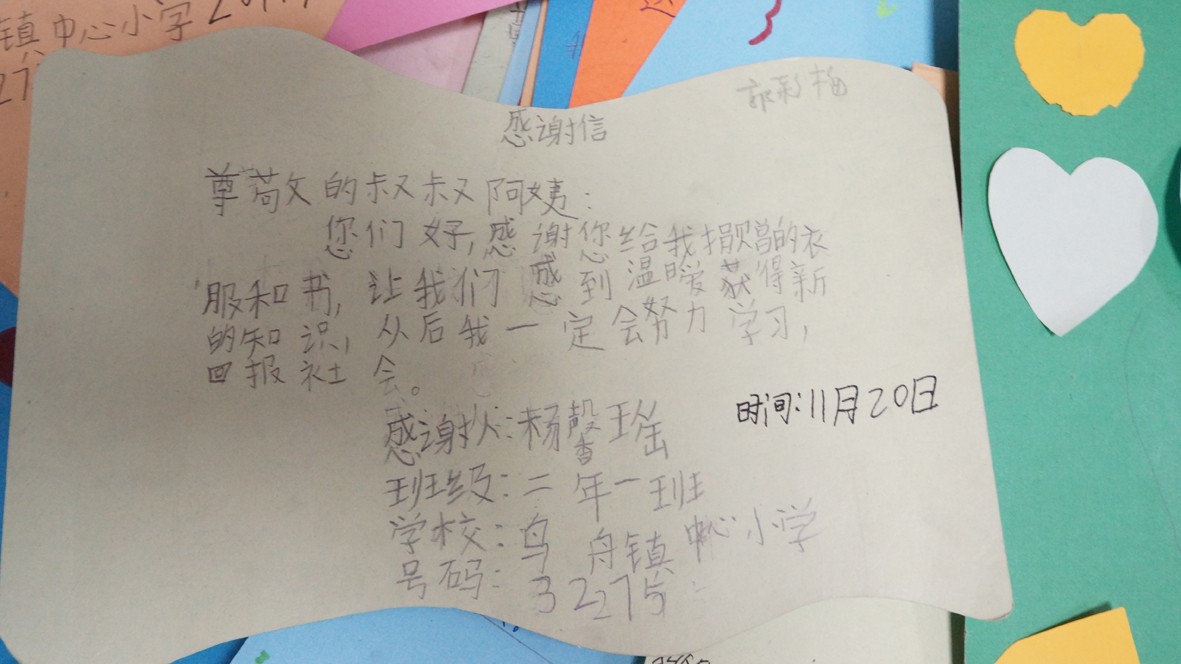 镇中心小学
27
郭彩梅
感谢信
尊敬的叔叔阿姨：
您们好,感谢您给我捐赠的衣
服和书,让我们感到温暖获得新
的知识,从后我一定会努力学习,
回报社会。
时间:11月20日
感谢人:杨馨瑶
班级:二年一班
学校:乌舟镇中心小学
号码:32275